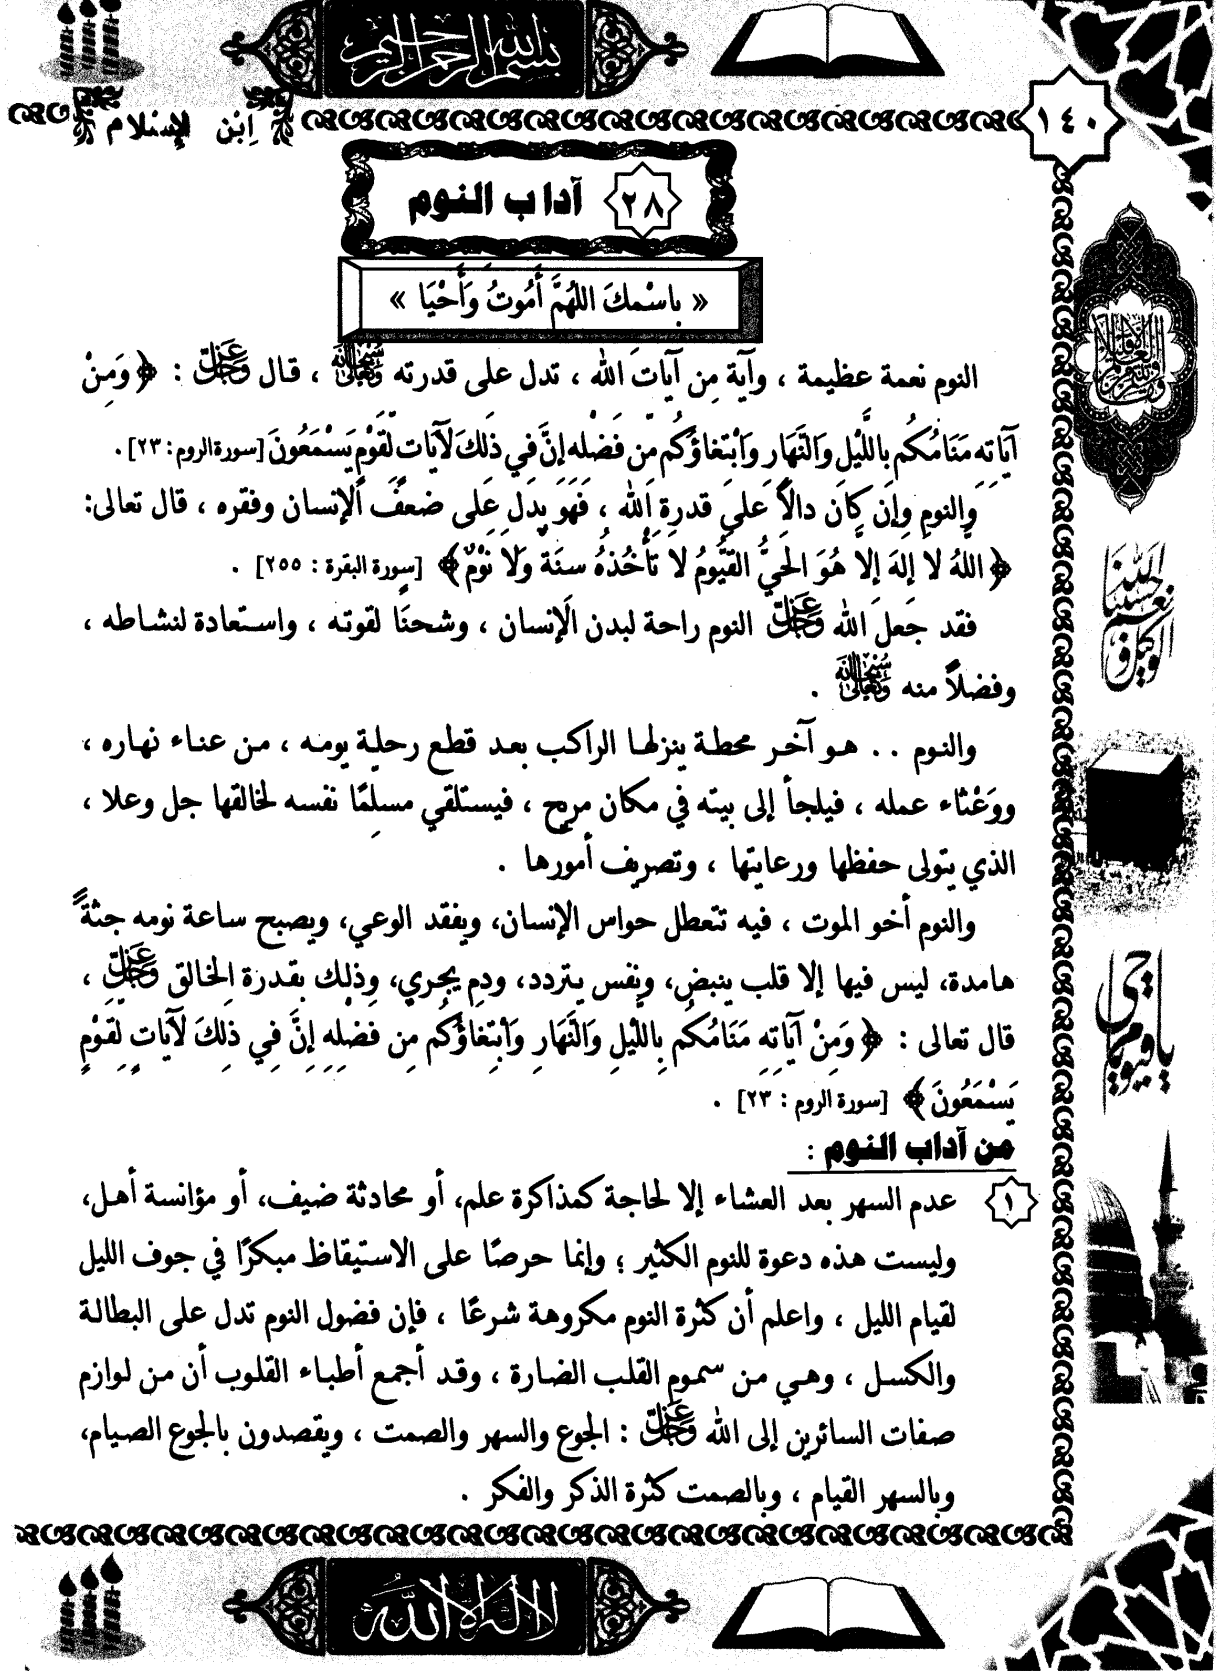 بسم الله الرحمن الرحيم
١٤٠
ابْن الإسْلام
٢٨ آداب النوم
« باسْمكَ اللهُمَّ أَمُوتُ وَأَحْيَا »
النوم نعمة عظيمة ، وآية من آيات الله ، تدل على قدرته سُبْحَانَهُ وَتَعَالَى ، قال عَزَّ وَجَلَّ : ﴿ وَمِنْ
آيَاتِهِ مَنَامُكُم بِاللَّيْلِ وَالنَّهَارِ وَابْتِغَاؤُكُم مِّن فَضْلِهِ إِنَّ فِي ذَلِكَ لَآيَات لِّقَوْمٍ يَسْمَعُونَ [سورة الروم: ٢٣] .
والنوم وإن كان دالاً على قدرة الله ، فهو يدل على ضعف الإنسان وفقره ، قال تعالى:
﴿ اللهُ لا إِلهَ إِلا هُوَ الحَيُّ القَيُّومُ لا تَأْخُذُهُ سِنَة وَلا نَوْمٌ ﴾ [سورة البقرة : ٢٥٥] .
فقد جعل الله عَزَّ وَجَلَّ النوم راحة لبدن الإنسان ، وشحنًا لقوته ، واستعادة لنشاطه ،
وفضلاً منه سُبْحَانَهُ وَتَعَالَى .
والنوم . . هو آخر محطة ينزلها الراكب بعد قطع رحلة يومه ، من عناء نهاره ،
ووَعْثاء عمله ، فيلجأ إلى بيته في مكان مريح ، فيستلقي مسلمًا نفسه لخالقها جل وعلا ،
الذي يتولى حفظها ورعايتها ، وتصريف أمورها .
والنوم أخو الموت ، فيه تتعطل حواس الإنسان، ويفقد الوعي، ويصبح ساعة نومه جثةً
هامدة، ليس فيها إلا قلب ينبض، ونفس يتردد، ودم يجري، وذلك بقدرة الخالق عَزَّ وَجَلَّ ،
قال تعالى : ﴿ وَمِنْ آيَاتِهِ مَنَامُكُم بِاللَّيْلِ وَالنَّهَارِ وَابْتِغَاؤُكُم مِن فَضْلِهِ إِنَّ فِي ذَلِكَ لَآيَاتٍ لِقَوْمٍ
يَسْمَعُونَ ﴾ [سورة الروم : ٢٣] .
من آداب النوم :
١ عدم السهر بعد العشاء إلا لحاجة كمذاكرة علم، أو محادثة ضيف، أو مؤانسة أهل،
وليست هذه دعوة للنوم الكثير ؛ وإنما حرصًا على الاستيقاظ مبكرًا في جوف الليل
لقيام الليل ، واعلم أن كثرة النوم مكروهة شرعًا ، فإن فضول النوم تدل على البطالة
والكسل ، وهي من سموم القلب الضارة ، وقد أجمع أطباء القلوب أن من لوازم
صفات السائرين إلى الله عَزَّ وَجَلَّ : الجوع والسهر والصمت ، ويقصدون بالجوع الصيام،
وبالسهر القيام ، وبالصمت كثرة الذكر والفكر .
حسبنا الله ونعم الوكيل
يا حي يا قيوم
لا إله إلا الله